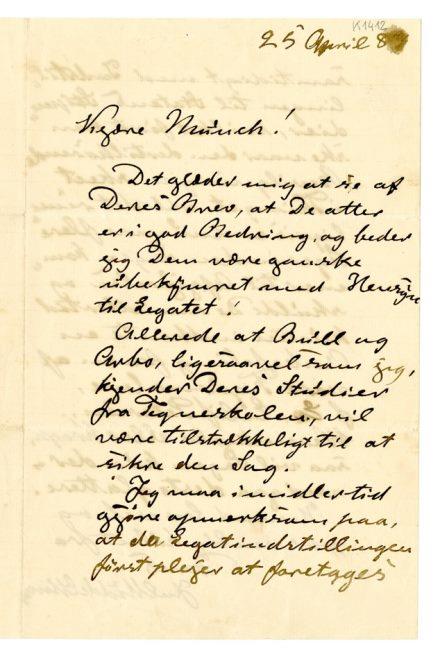 K1412
25 April 8
Kjære Münch!
Det glæder mig at se af
Deres Brev, at De atter
er i god Bedring, og beder
jeg Dem være ganske
übekÿmret med Hensÿn
til Legatet!
Allerede at Büll og
Arbo, ligesaavel som jeg,
kjender Deres Stüdier
fra Tegneskolen, vil
være tilstrækkeligt til at
sikre den Sag.
Jeg maa imidlertid
gjøre opmerksom paa,
at da Legatindstillingen
först plejer at foretages